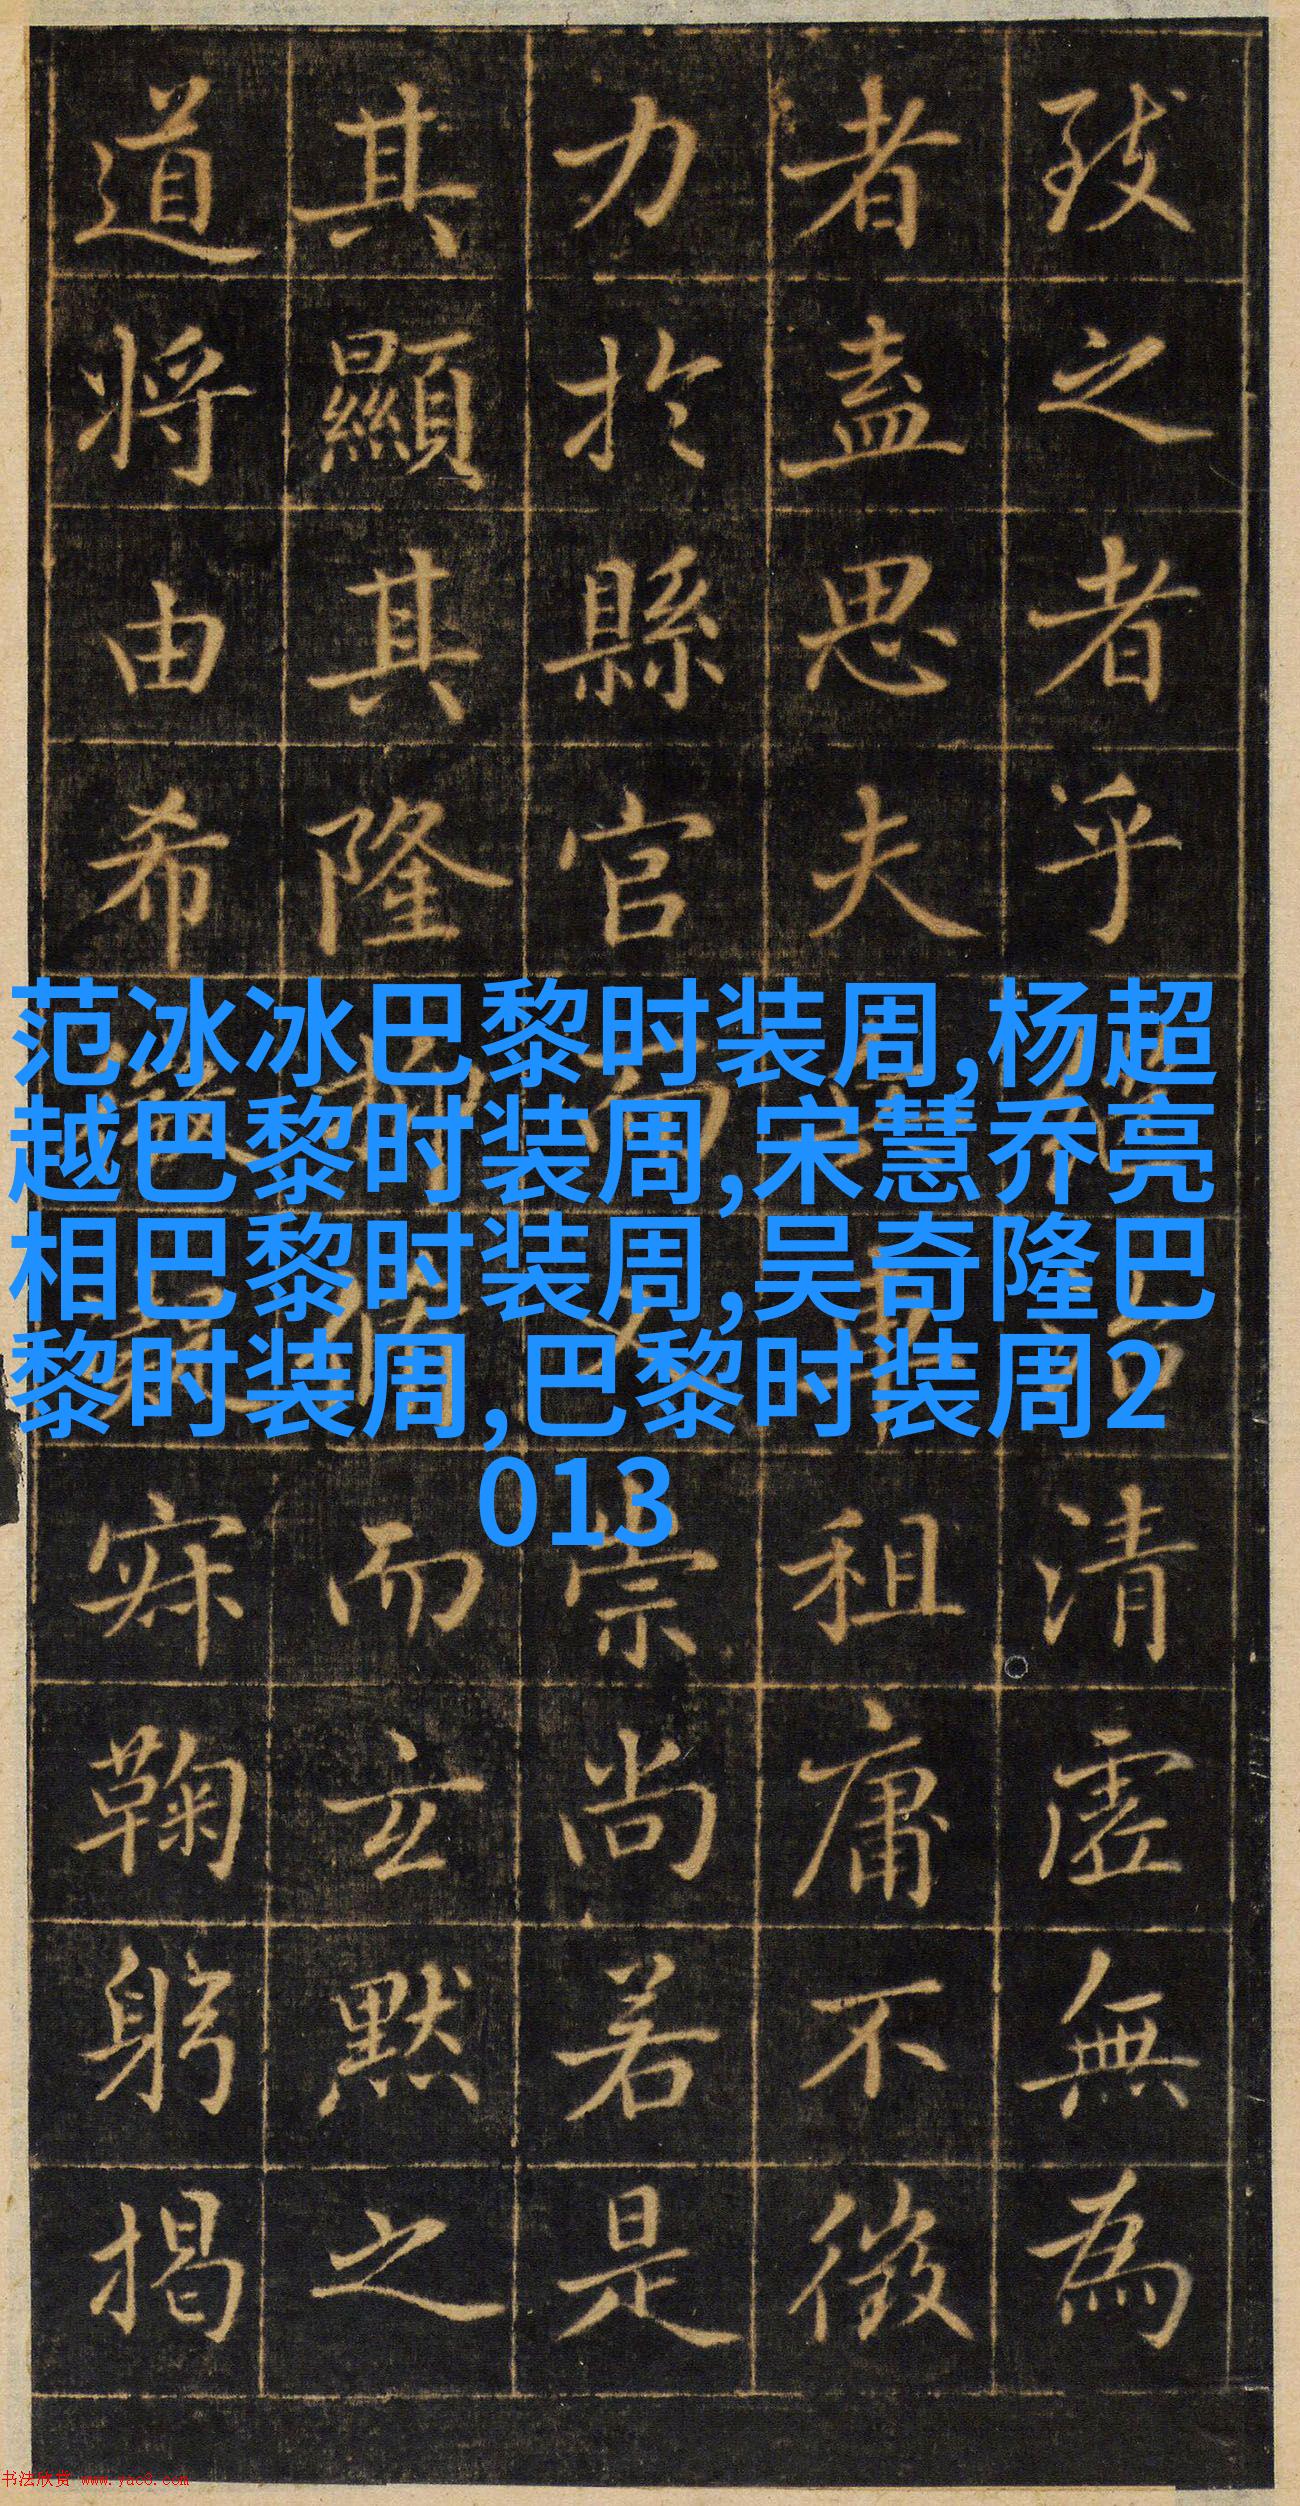 致之者乎清虛無為
者盍思夫租庸不徵
力於縣官而崇尚若是
其顯其隆而玄默之
道將由希寂鞠躬揭
范冰冰巴黎时装周,杨超
越巴黎时装周,宋慧乔亮
相巴黎时装周,吴奇隆巴
黎时装周,巴黎时装周2
013
书法欣赏 www.yac8.com